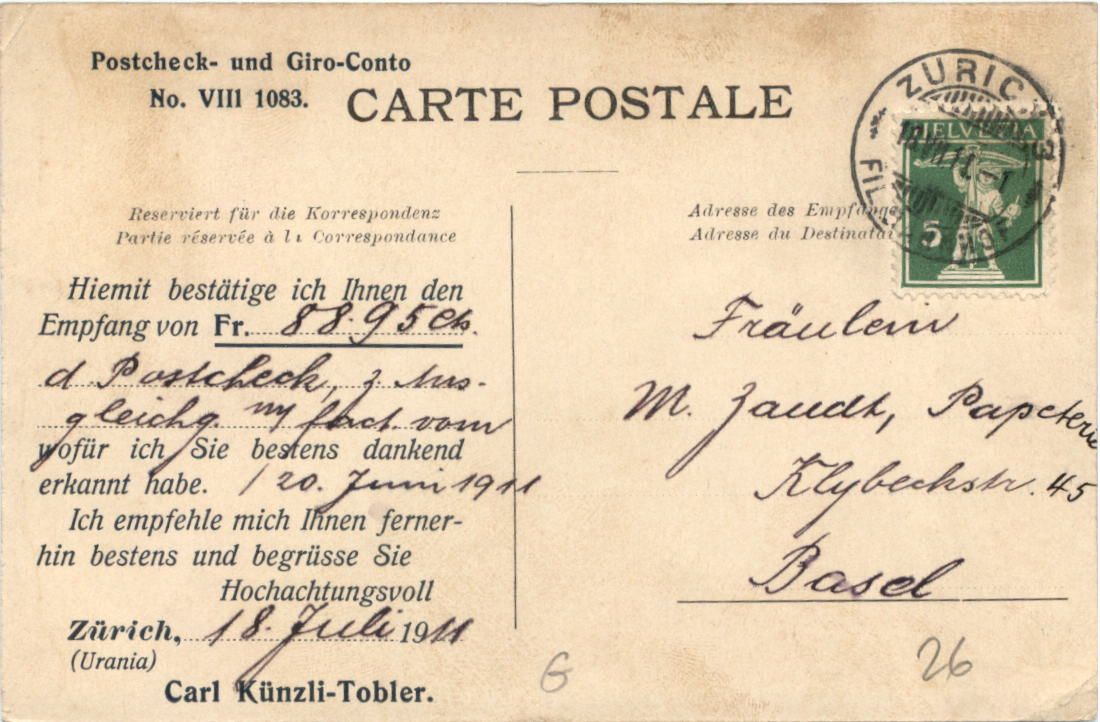 Postcheck- und Giro-Conto
No. VIII 1083.
CARTE POSTALE
ZÜRICH
18.VII.11.
HELVETIA
5
Reserviert für die Korrespondenz
Partie réservée à la Correspondance
Adresse des Empfänge
Adresse du Destinatai
Hiemit bestätige ich Ihnen den
Empfang von Fr. 88.95 Cts.
d. Postcheck, z. Aus-
gleichg. m/ fact. vom
wofür ich Sie bestens dankend
erkannt habe. /20. Juni 1911
Ich empfehle mich Ihnen ferner-
hin bestens und begrüsse Sie
Hochachtungsvoll
Zürich, 18. Juli 1911
(Urania)
Carl Künzli-Tobler.
Fräulein
M. Zaudt, Papeterie
Klybeckstr. 45
Basel
G
26